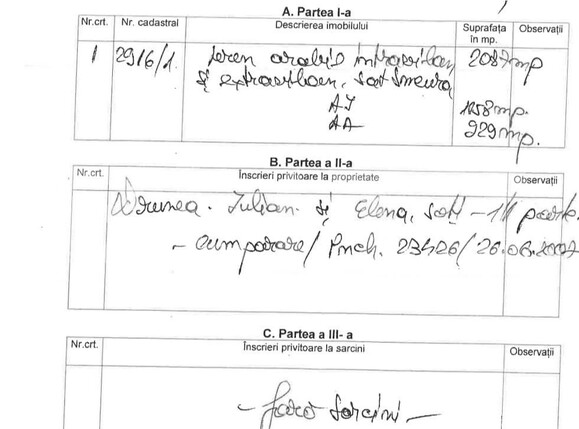 A. Partea I-a
Nr.crt. Nr. cadastral Descrierea imobilului Suprafața în mp. Observații
1 2916/1. teren arabil intravilan 2087mp
și extravilan, sat Smeura
AI 1158mp.
AA 929mp.
B. Partea a II-a
Nr.crt. Înscrieri privitoare la proprietate Observații
Iulian și Elena, soți - 1/1 parte.
- cumparare / 23426/26.06.2007
C. Partea a III- a
Nr.crt. Înscrieri privitoare la sarcini Observații
- fara sarcini -